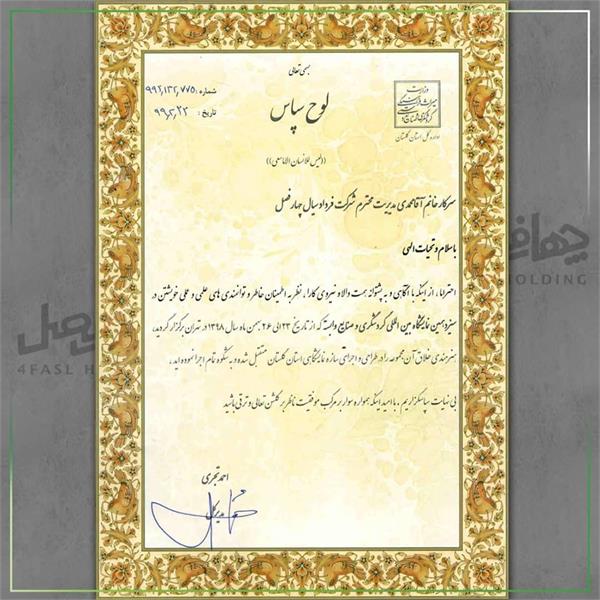 بسمه تعالی
شماره: ۹۹۲,۱۳۲,۷۷۵
تاریخ: ۹۹,۲,۲۳
وزارت
میراث فرهنگی
گردشگری و صنایع دستی
اداره کل استان گلستان
لوح سپاس
((لیس للانسان الا ماسعی))
سرکار خانم آقامحمدی مدیریت محترم شرکت فرداد سیال چهار فصل
با سلام و تحیات الهی
احتراما، از اینکه با آگاهی و به پشتوانه همت والا و نیروی کارا، نظر به اطمینان خاطر و توانمندی های علمی و عملی خویشتن در
سیزدهمین نمایشگاه بین المللی گردشگری و صنایع وابسته که از تاریخ ۲۳ الی ۲۶ بهمن ماه سال ۱۳۹۸ در تهران برگزار گردید،
هنرمندی خلاق آن مجموعه را در طراحی و اجرای سازه نمایشگاهی استان گلستان متقبل شده و به شکوه تمام اجرا نموده اید،
بی نهایت سپاسگزاریم. با امید اینکه همواره سوار بر مرکب موفقیت ناظر بر گلشن تعالی و ترقی باشید
احمد تجری
مدیرکل
چهار ف
HOLDING
صل
4FASL H